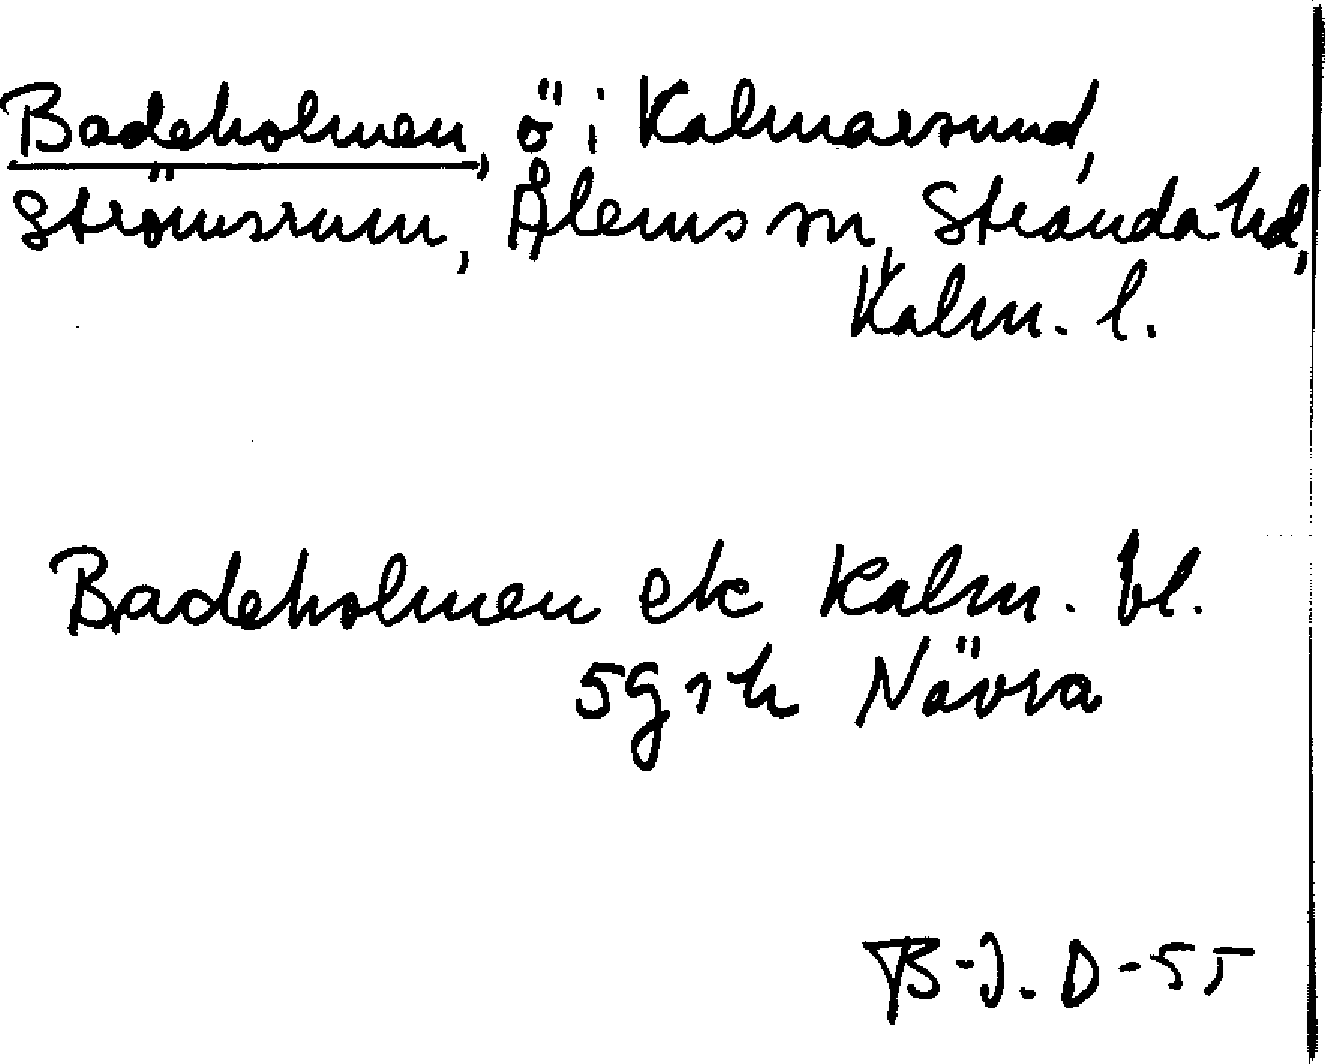 Badeholmen, ö i Kalmarsund,
Strömsrum, Ålems sn, Stranda hd,
Kalm. l.
Badeholmen ek Kalm. bl.
5g sh Nävra
B-J. D-55